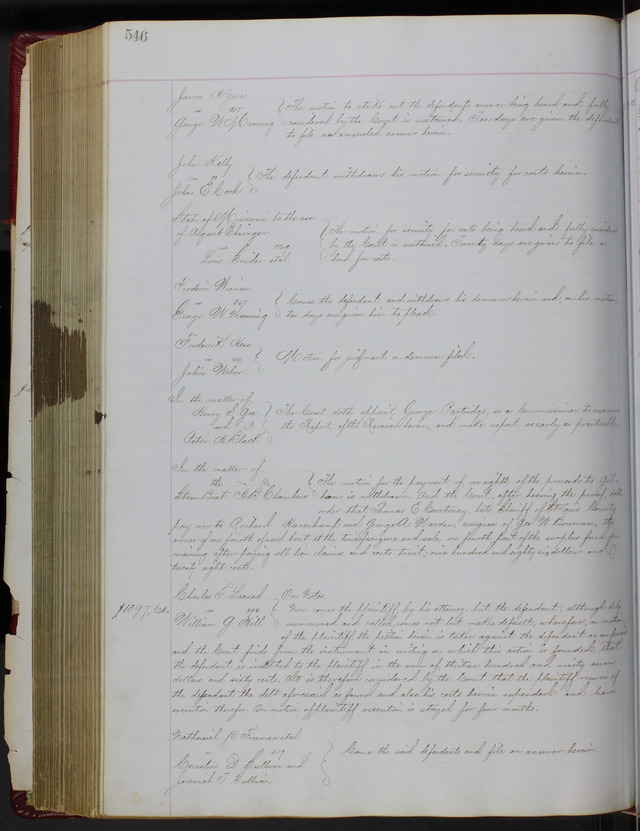 546
James
vs
George W Manning
The motion to strike out the defendants answer being heard and fully
considered by the Court is sustained. Ten days are given the defendant
to file an amended answer herein.
John Kelly
vs
John E. Cook
The defendant withdraws his motion for security for costs herein.
State of Missouri to the use
of August Ehninger
vs 729
Louis et al
The motion for security for costs being heard and fully considered
by the Court is sustained. Twenty days are given to file a
bond for costs.
Frederic
vs 307
George W Manning
Comes the defendant and withdraws his demurrer herein and, on his motion,
ten days are given him to plead.
Frederick
vs
Julius Weber
Motion for judgment on demurrer filed.
In the matter of
Henry S. Gee
and
Peter A. Black
The Court doth appoint George Partridge, as a Commissioner to examine
the Report of the Receiver herein, and make report as early as practicable
In the matter of
the
Steam Boat Chambers
The motion for the payment of one eighth of the proceeds to
is withdrawn. And the Court, after hearing the proof, doth
order that Thomas C. late Sheriff of St Louis County
pay over to Richard and George A. assignees of Geo W Bowman, the
owner of one fourth of said boat at the time of seizure and sale, one fourth part of the surplus fund re-
maining after paying all lien claims and costs to wit; one hundred and eighty six dollars and
twenty eight cents.
Charles S.
vs 796
William G. Hill
On Notes.
$1397.60.
Now comes the plaintiff, by his attorney, but the defendant, although duly
summoned and called, comes not but makes default; wherefore, on motion
of the plaintiff, the petition herein is taken against the defendant as confessed
and the Court finds from the instrument in writing on which this action is founded that
the defendant is indebted to the plaintiff in the sum of thirteen hundred and ninety seven
dollars and sixty cents. It is therefore considered by the Court that the plaintiff recover of
the defendant the debt aforesaid as found and also his costs herein expended and have
execution therefor. On motion of plaintiff execution is stayed for four months.
Nathaniel et al
vs 219
Cornelius D. Sullivan and
Jeremiah T. Sullivan
Come the said defendants and file an answer herein.